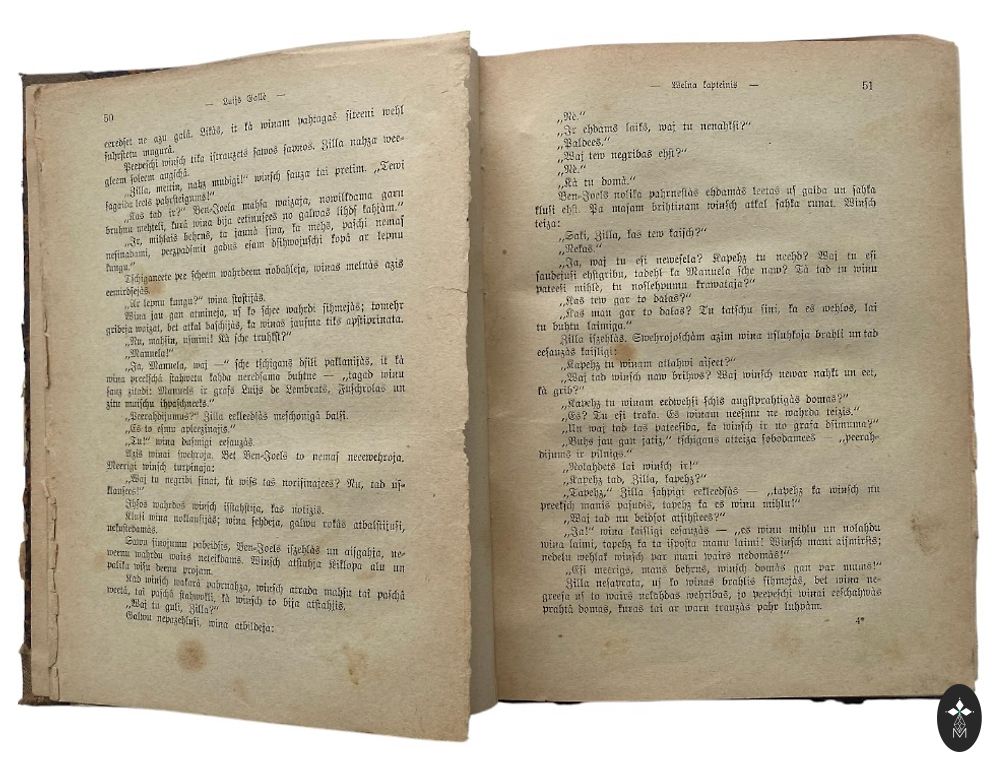 50
— Luijs Gallè —
eeredset ne azu galà. Likàs, it kà winam pahragas siteeni wehl
sahrstetu mugurà.
Peepeschi winsch tika istrauzets sawos sapnos. Zilla nahza wee-
gleem soleem augschà.
„Zilla, meitin, nahz mudigi!“ winsch sauza tai pretim. „Tewi
sagaida leels pahrsteigums!“
„Kas tad ir?“ Ben-Joela mahsa waizaja, nowilkdama garu
bruhnu mehteli, kurà wina bija eetinusees no galwas lihds kahjàm.
„Ir, mihlais behrns, ta jaunà sina, ka mehs, paschi nemas
nesinadami, peezpadsmit gadus esam dsihwojuschi kopà ar lepnu
kungu.“
Tschiganeete pee scheem wahrdeem nobahleja, winas melnàs azis
eemirdsejàs.
„Ar lepnu kungu?“ wina stostijàs.
Wina jau gan atmineja, us ko schee wahrdi sihmejàs; tomehr
gribeja woizat, bet atkal baschijàs, ka winas jausma tiks apstiprinata.
„Nu, mahsin, usmini! Kà sche truhkst?“
„Manuela!“
„Ja, Manuela, waj —“ sche tschigans dsili paklanijàs, it kà
wina preekschà stahwetu kahda neredsama buhtne — „tagad winu
sauz zitadi: Manuels ir grafs Luijs de Lembrats, Fuschrolas un
zitu muischu ihpaschneeks.“
„Peerahdijumus?“ Zilla eekleedsàs meschonigà balsi.
„Es to esmu apleezinajis.“
„Tu!“ wina dusmigi eesauzàs.
Azis winai swehroja. Bet Ben-Joels to nemas neeewehroja.
Meerigi winsch turpinaja:
„Waj tu negribi sinat, kà wiss tas norisinajees? Nu, tad us-
klausees!“
Ihsos wahrdos winsch isstahstija, kas noticis.
Klusi wina noklausijàs; wina sehdeja, galwu rokàs atbalstijusi,
nekustedamàs.
Sawu sinojumu pabeidsis, Ben-Joels iszehlàs un aisgahja, ne-
weenu wahrdu wairs neteikdams. Winsch atstahja seiklopa alu un
palika wisu deenu projam.
Kad winsch wakarà pahrnahza, winsch atrada mahsu tai paschà
weetà, tai paschà stahwokli, kà winsch to bija atstahjis.
„Waj tu guli, Zilla?“
Galwu nepazehlusi, wina atbildeja:
— Welna kapteinis —
51
„Ne.“
„Ir ehdams laiks, waj tu nenahksi?“
„Paldees.“
„Waj tew negribas ehst?“
„Ne.“
„Kà tu domà.“
Ben-Joels nosika pahrnestàs ehdamàs leetas us galda un sahka
klusi ehst. Pa masam brihtinam winsch atkal sahka runat. Winsch
teiza:
„Saki, Zilla, kas tew kaisch?“
„Nekas.“
„Ja, waj tu esi newesela? Kapehz tu needh? Waj tu esi
saudejusi ehstgribu, tadehl ka Manuela sche naw? Tà tad tu winu
pateesi mihlè, tu noslehpumu krawataja?“
„Kas tew gar to dalas?“
„Kas man gar to dalas? Tu tatschu sini, ka es wehlos, lai
tu buhtu laimiga.“
Zilla iszehlàs. Swehrojoschàm azim wina usluhkoja brahli un tad
eesauzàs kaisligi:
„Kapehz tu winam atlahwi aiseet?“
„Waj tad winsch naw brihws? Waj winsch newar nahkt un eet,
kà grib?“
„Kapehz tu winam eedwehsi schis augstprahtigàs domas?“
„Es? Tu esi traka. Es winam neesmu ne wahrda teizis.“
„Un waj tad tas pateesiba, ka winsch ir no grafa dsimuma?“
„Buhs jau gan jatiz,“ tschigans atteiza sobodamees — „peerah-
dijums ir pilnigs.“
„Nolahdets lai winsch ir!“
„Kapehz tad, Zilla, kapehz?“
„Tapehz,“ Zilla sahpigi eekleedsàs — „tapehz ka winsch nu
preeksch manis pasudis, tapehz ka es winu mihlu!“
„Waj tad nu beidsot atsihstees?“
„Ja!“ wina kaisligi eesauzàs — „es winu mihlu un nolahdu
wina laimi, tapehz ka ta isposta manu laimi! Winsch mani aismirsis;
nedelu wehlak winsch par mani wairs nedomàs!“
„Esi meerigs, mans behrns, winsch domàs gan par mums!“
Zilla nesaprata, us ko winas brahlis sihmejàs, bet wina ne-
greeja us to wairs nekahdas wehribas, jo peepeschi winai eeschahwàs
prahtà domas, kuras tai ar waru trauzàs pahr luhpàm.
4*
M